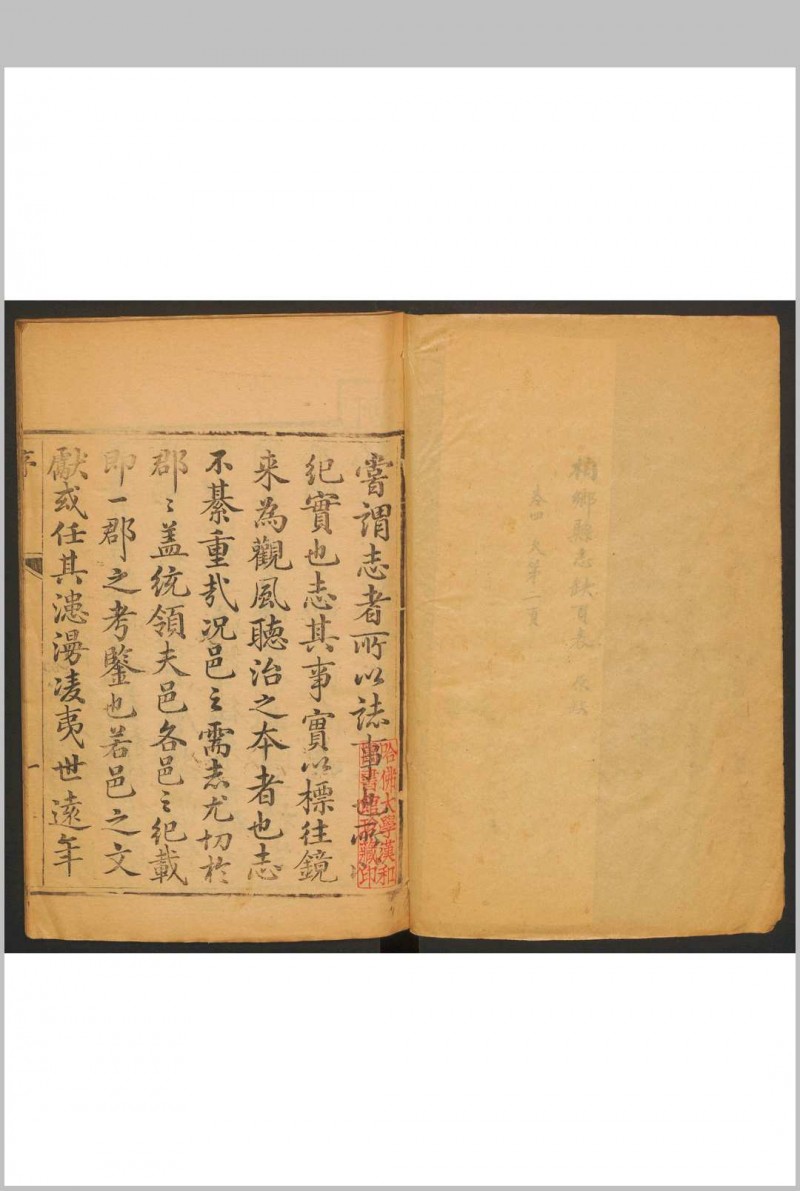 柏鄉縣志缺頁表
卷四 欠第二頁
嘗謂志者所以誌事也所以
紀實也志其事實以標往鏡
来為觀風聽治之本者也志
不綦重㦲况邑之需志尤切於
郡〻盖統領夫邑各邑之紀載
即一郡之考鑒也若邑之文
獻或任其漶漫凌夷世遠年
序
一
哈佛大學漢和
圖書館珍藏印